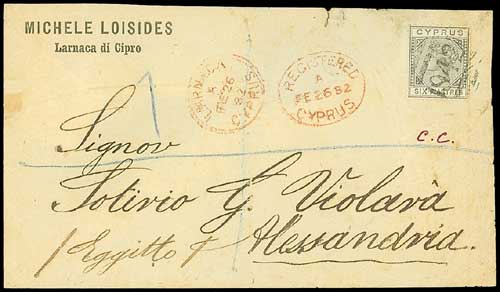 MICHELE LOISIDES
Larnaca di Cipro
LARNACA
FE 26
82
CYPRUS
REGISTERED
A
FE 26 82
CYPRUS
CYPRUS
SIX PIASTRES
C.C.
Signor
Sotirio G. Violarà
Alessandria.
/ Eggitto /